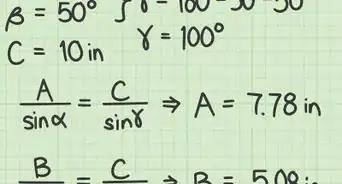 β = 50° } γ = 180 - 30 - 50
C = 10 in γ = 100°
A/sin α = C/sin γ ⇒ A = 7.78 in
B C ⇒ B = 5.08 in